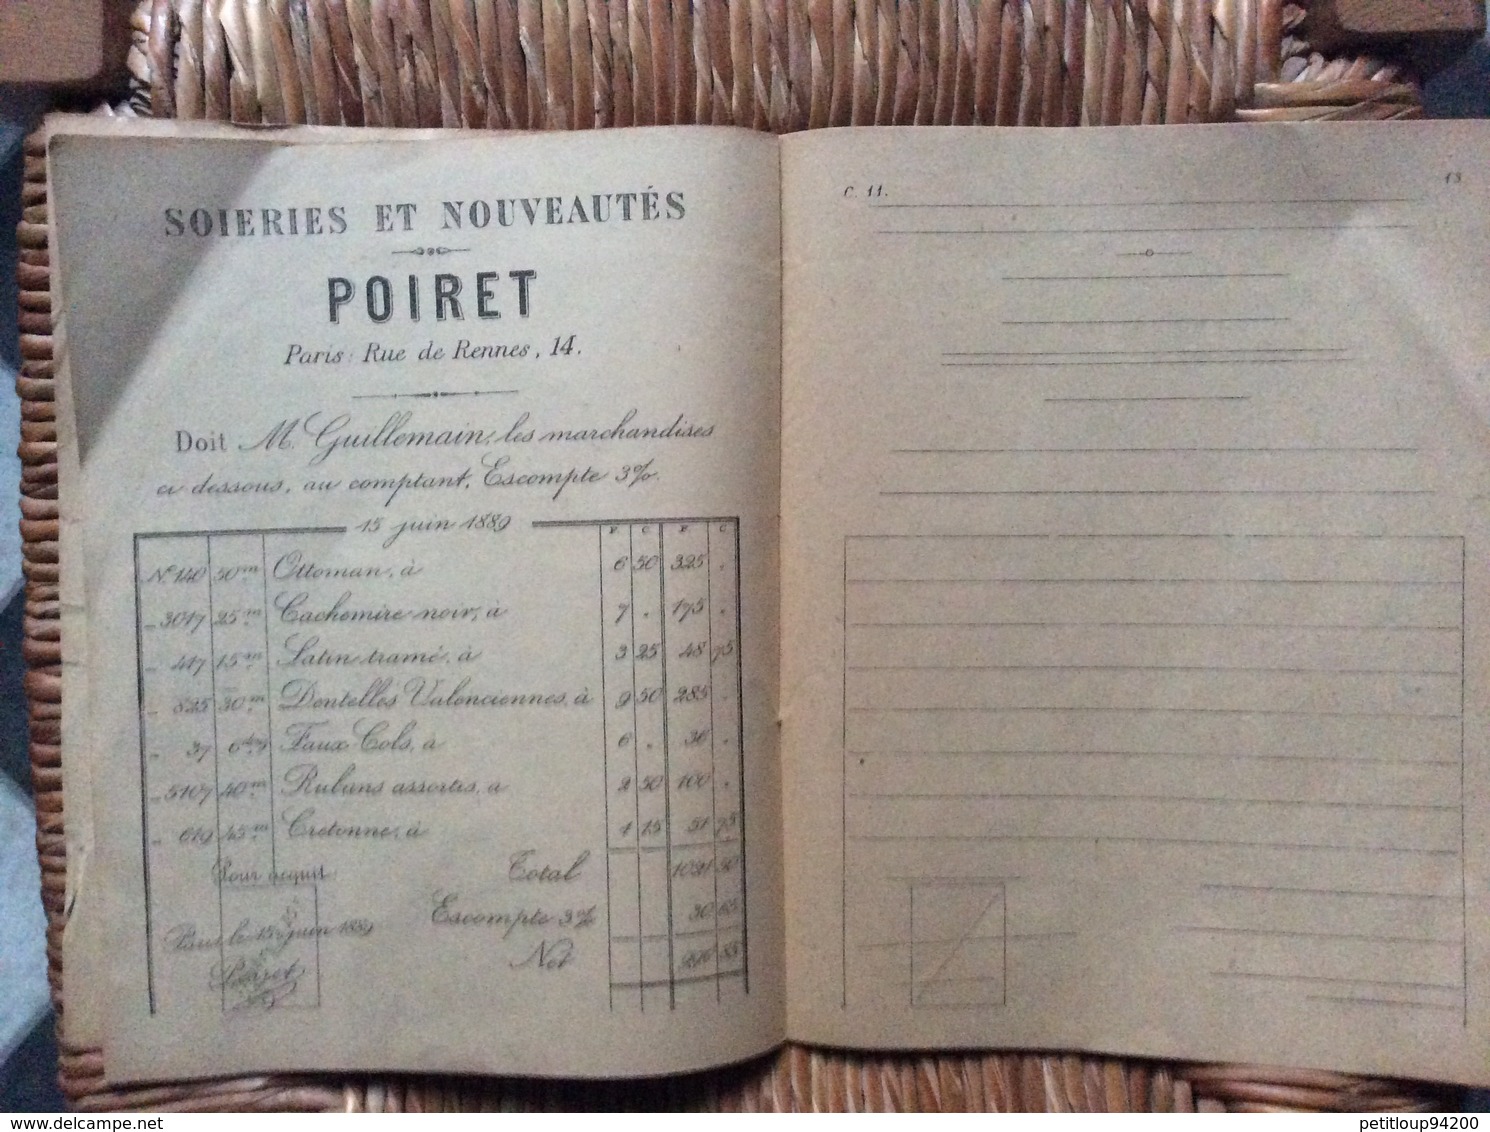 SOIERIES ET NOUVEAUTÉS
POIRET
Paris: Rue de Rennes, 14.
Doit M. Guillemain, les marchandises
ci dessous, au comptant, Escompte 3%.
15 juin 1889
F. C. F. C
N° 140 50m Ottoman, à 6 50 325 .
_ 3017 25m Cachemire noir, à 7 . 175 .
_ 417 15m Satin tramé, à 3 25 48 75
_ 825 30m Dentelles Valenciennes, à 9 50 285 .
_ 37 6 Faux Cols, à 6 . 36 .
_ 5107 40m Rubans assortis, à 2 50 100 .
_ 619 45m Cretonne, à 1 15 51 75
Pour acquit Total 1021 50
Escompte 3% 30 65
Paris le 15 juin 1889
Net 990 85
Poiret
C. 11. 13
delcampe.net
petitloup94200